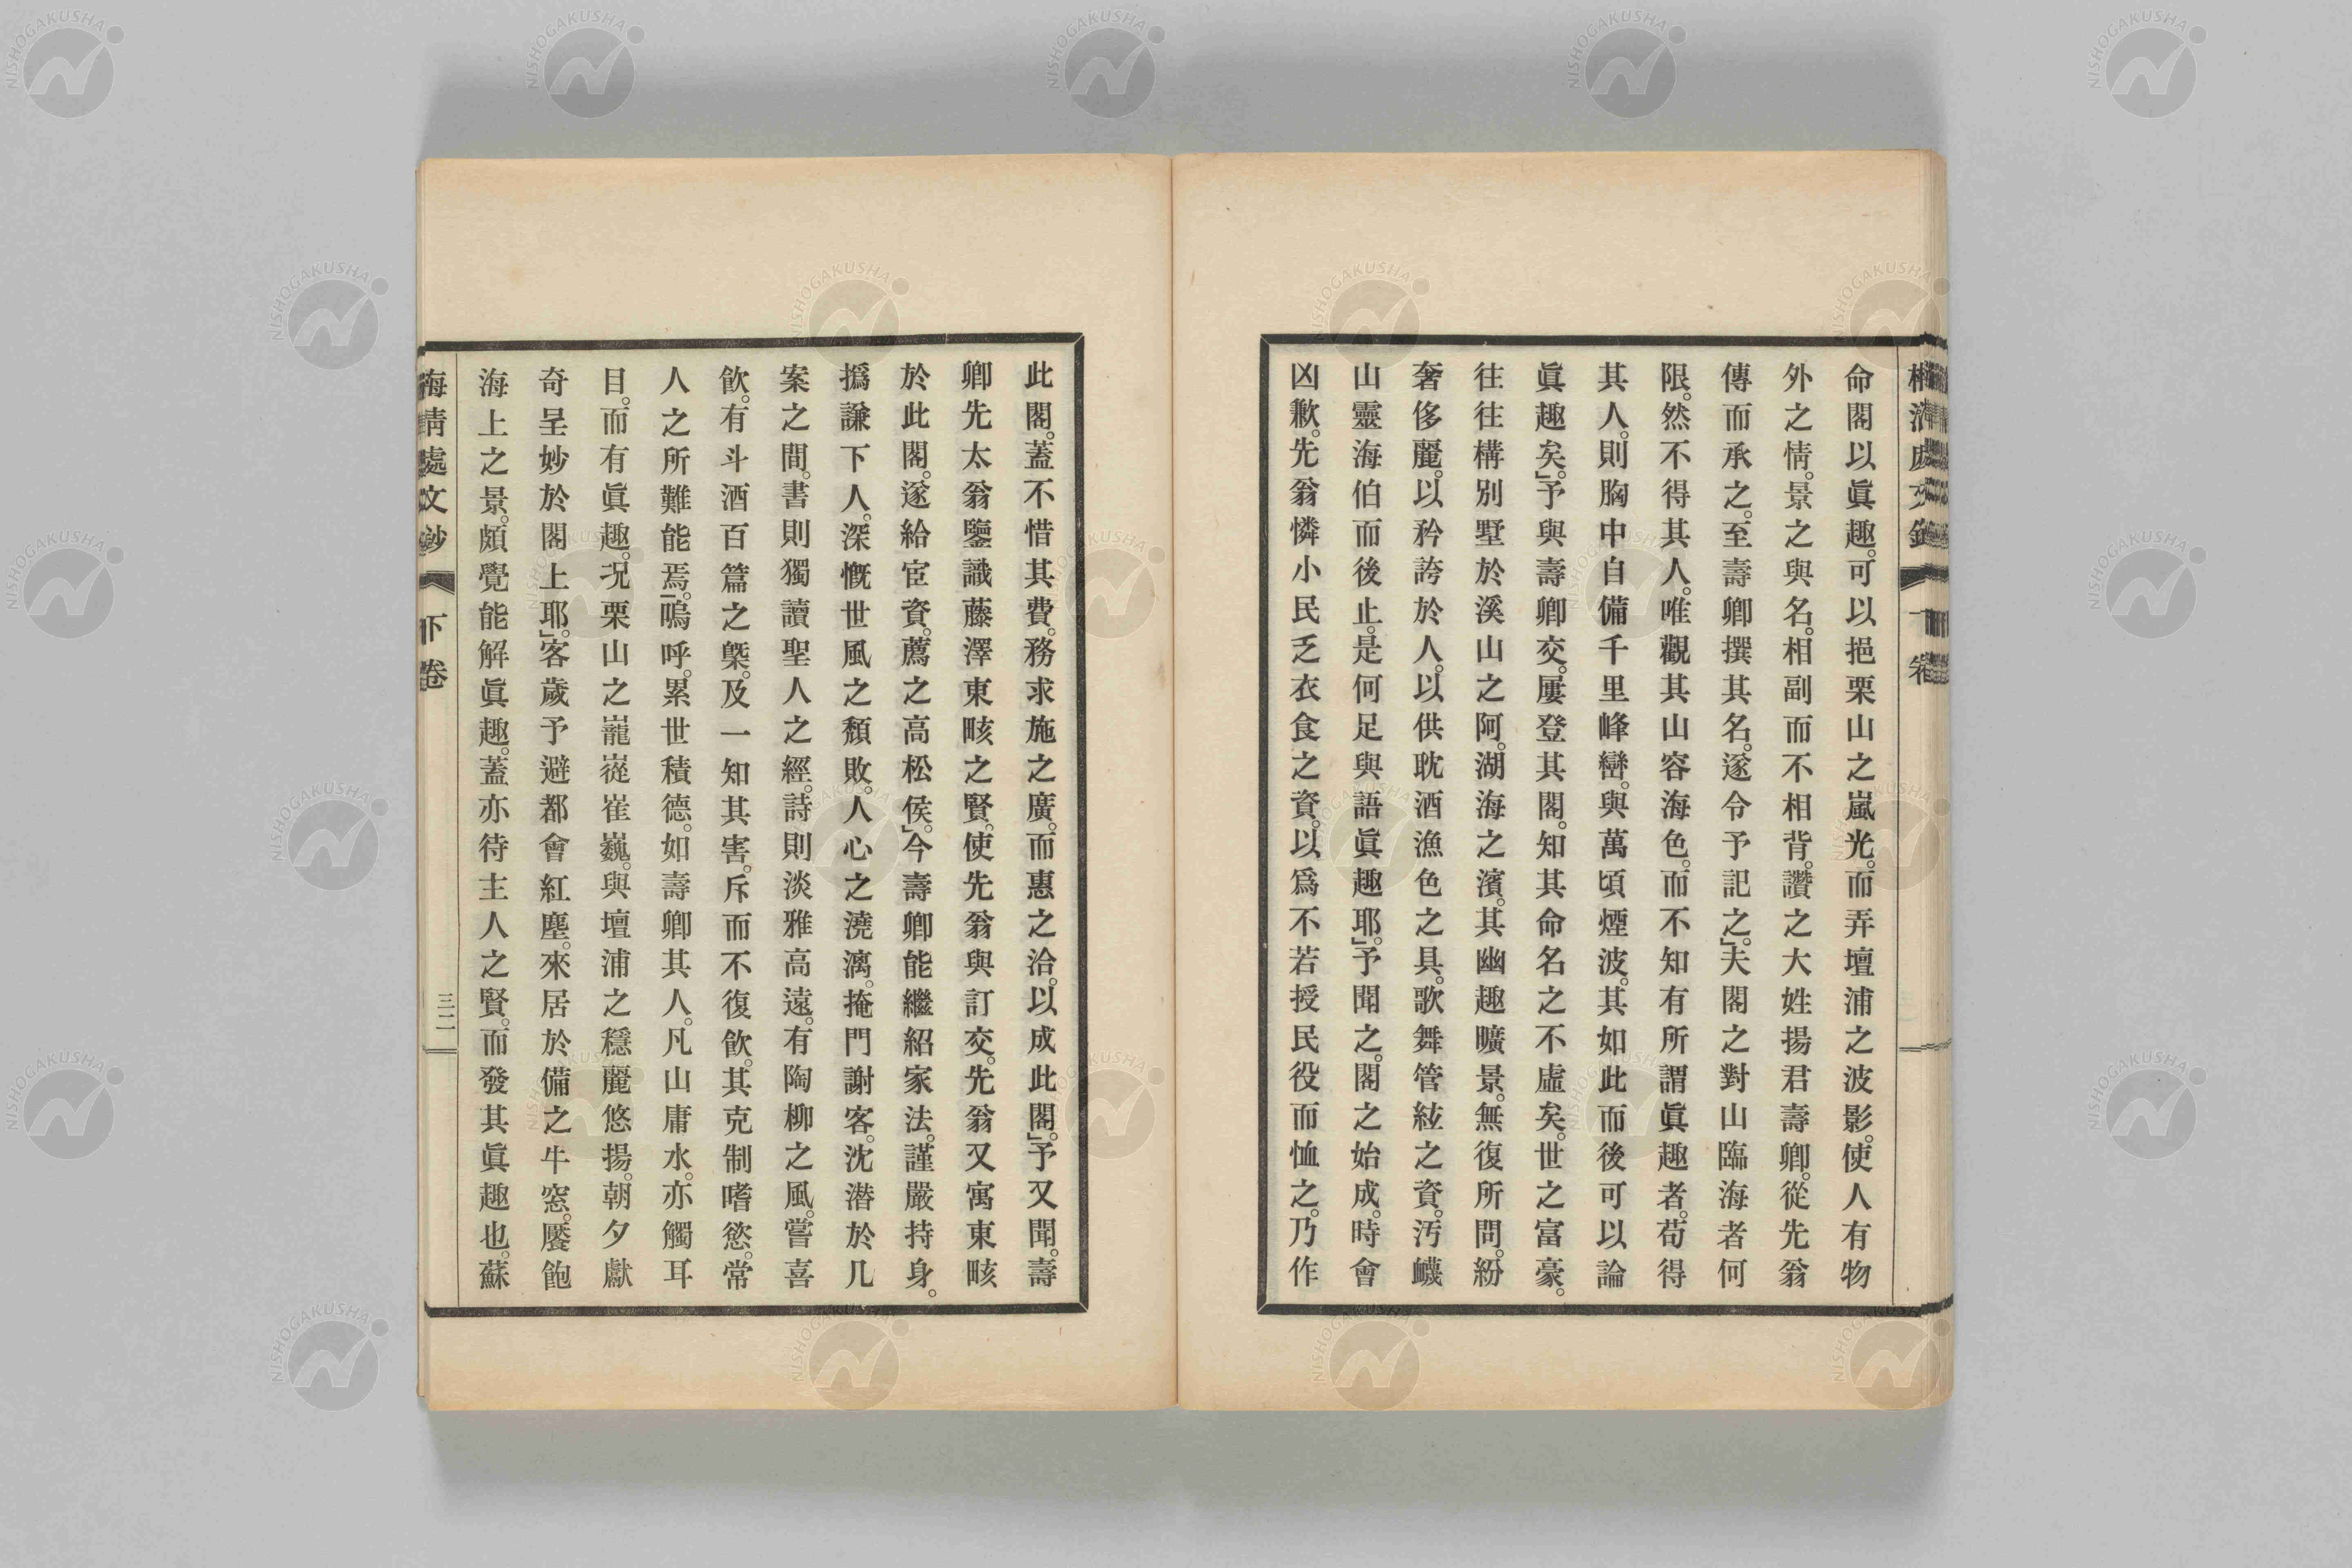 命閣以眞趣。可以挹栗山之嵐光。而弄壇浦之波影。使人有物
外之情。景之與名。相副而不相背。讚之大姓揚君壽卿。從先翁
傳而承之。至壽卿撰其名。遂令予記之。」夫閣之對山臨海者何
限。然不得其人。唯觀其山容海色。而不知有所謂眞趣者。苟得
其人。則胸中自備千里峰巒。與萬頃煙波。其如此而後可以論
眞趣矣。」予與壽卿交。屢登其閣。知其命名之不虛矣。世之富豪。
往往構別墅於溪山之阿。湖海之濱。其幽趣曠景。無復所問。紛
奢侈麗。以矜誇於人。以供耽酒漁色之具。歌舞管絃之資。汚衊
山靈海伯而後止。是何足與語眞趣耶。」予聞之。閣之始成。時會
凶歉。先翁憐小民乏衣食之資。以爲不若授民役而恤之。乃作
此閣。蓋不惜其費。務求施之廣。而惠之洽。以成此閣。」予又聞。壽
卿先太翁鑒識藤澤東畡之賢。使先翁與訂交。先翁又寓東畡
於此閣。遂給宦資。薦之高松侯。」今壽卿能繼紹家法。謹嚴持身。
撝謙下人。深慨世風之頽敗。人心之澆漓。掩門謝客。沈潜於几
案之間。書則獨讀聖人之經。詩則淡雅高遠。有陶柳之風。嘗喜
飮。有斗酒百篇之槩。及一知其害。斥而不復飮。其克制嗜慾。常
人之所難能焉。」嗚呼。累世積德。如壽卿其人。凡山庸水。亦觸耳
目。而有眞趣。况栗山之巃嵸崔巍。與壇浦之穩麗悠揚。朝夕獻
奇呈妙於閣上耶。」客歲予避都會紅塵。來居於備之牛窓。饜飽
海上之景。頗覺能解眞趣。蓋亦待主人之賢。而發其眞趣也。蘇
海靖處文鈔 下卷 三二
NISHOGAKUSHA